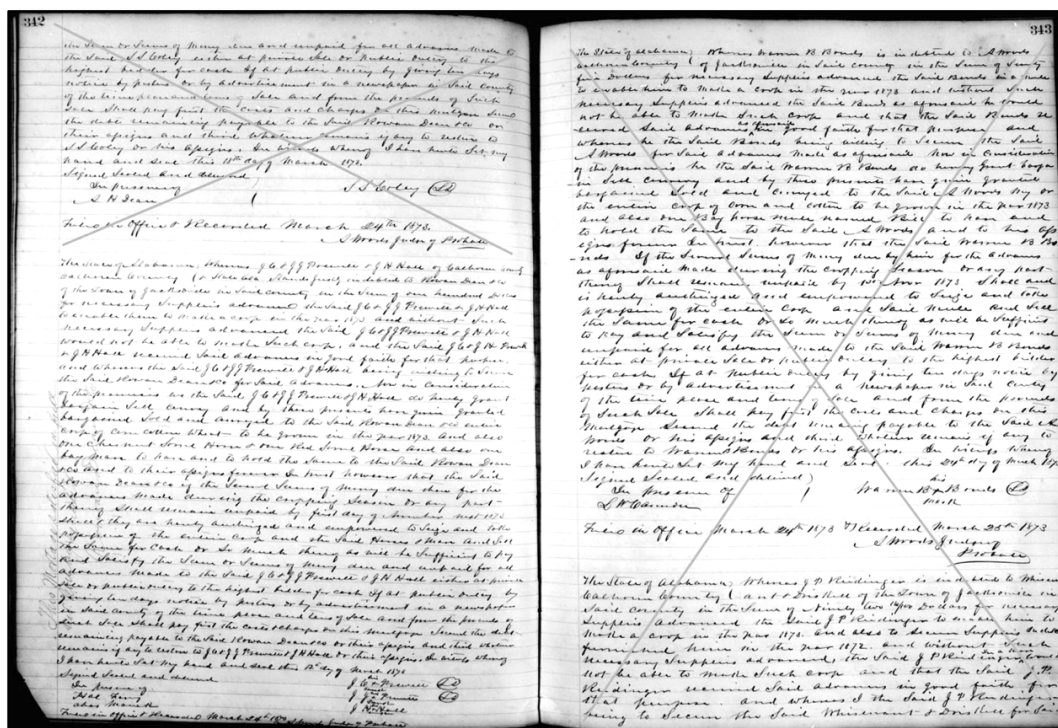 342
the Sum or Sums of Money due and unpaid for all advances made to
the Said S S Coley either at private Sale or public outcry to the
highest bidder for cash If at public outcry by giving ten days
notice by posters or by advertisement in a newspaper in Said County
of the time place and terms of Sale and from the proceeds of Such
Sale Shall pay first the costs and charges on this mortgage Second
the debt remaining payable to the Said Rowan Dean & co or
their assigns and third whatever remains if any to return to
S S Coley or his assigns. In witness whereof I have hereto Set my
hand and Seal this 18th day of March 1873.
Signed Sealed and delivered
In presence of
S H Dean
S S Coley
Filed in Office & Recorded March 24th 1873.
S Woods Judge of Probate
The State of Alabama Whereas J C & J J Prewett & J H Hall of Calhoun County
Calhoun County & State are justly indebted to Rowan Dean & co
of the Town of Jacksonville in Said County in the Sum of one hundred Dollars
for necessary Supplies advanced the Said J C & J J Prewett & J H Hall
to enable them to make a crop in the year 1873 and without Such
necessary Supplies advanced the Said J C & J J Prewett & J H Hall
would not be able to make Such crop, and the Said J C & J J Prewett
& J H Hall received Said advances in good faith for that purpose.
and whereas the Said J C & J J Prewett & J H Hall being willing to Secure
the Said Rowan Dean & co for Said advances. Now in consideration
of the premises we the Said J C & J J Prewett & J H Hall do hereby grant
bargain Sell convey and by these presents have given granted
bargained Sold and conveyed to the Said Rowan Dean & co entire
crop of corn cotton & wheat to be grown in the year 1873. and also
one Chesnut Sorrel Horse & one Horse and also one
bay Mare to have and to hold the Same to the Said Rowan Dean
& co and to their assigns forever In trust however that the Said
Rowan Dean & co if the Several Sums of money due them for the
advances made during the cropping Season or any part
thereof Shall remain unpaid by first day of 1873
they are hereby authorized and empowered to Seize and take
possession of the entire crop and the Said Horses & Mare and Sell
the Same for cash or So much thereof as will be Sufficient to pay
and Satisfy the Sum or Sums of money due and unpaid for all
advances made to the Said J C & J J Prewett & J H Hall either at private
Sale or public outcry to the highest bidder for cash If at public outcry by
giving ten days notice by posters or by advertisement in a newspaper
in Said County of the time place and terms of Sale and from the proceeds of
Such Sale Shall pay first the costs & charges on this mortgage Second the debt
remaining payable to the Said Rowan Dean & co or their assigns and third whatever
remains if any to return to J C & J J Prewett & J H Hall or their assigns. In witness whereof
I have hereto Set my hand and Seal this day of March 1873
Signed Sealed and delivered
In presence of
J C Prewett
J J Prewett
J H Hall
Filed in Office & Recorded March 24th 1873 S Woods Judge of Probate
343
The State of Alabama Whereas Warren B Bonds is indebted to S Woods
Calhoun County of Jacksonville in Said County in the Sum of
five Dollars for necessary Supplies advanced the Said Bonds in
to enable him to make a crop in the year 1873 and without Such
necessary Supplies advanced the Said Bonds as aforesaid he would
not be able to make Such crop and that the Said Bonds re
ceived Said advances as aforesaid in good faith for that purpose and
whereas he the Said Bonds being willing to Secure the Said
S Woods for Said advances made as aforesaid Now in consideration
of the premises he the Said Warren B Bonds do hereby Grant bargain
Sell convey and by these presents have given granted
bargained Sold and conveyed to the Said S Woods my
the entire crop of corn and cotton to be grown in the year 1873
and also one Bay horse mule named Bill to have and
to hold the Same to the Said S Woods and to his as
signs forever In trust however that the Said Warren B Bo
nds If the Several Sums of Money due by him for the advances
as aforesaid made during the cropping Season or any part
thereof Shall remain unpaid by 1st Nov 1873 Shall and
is hereby authorized and empowered to Seize and take
possession of the entire crop and Said Mule and Sell
the Same for cash or So much thereof as will be Sufficient
to pay and Satisfy the Sum or Sums of Money due and
unpaid for all advances made to the Said Warren B Bonds
either at private Sale or public outcry to the highest bidder
for cash If at public outcry by giving ten days notice by
posters or by advertisement in a newspaper in Said County
of the time place and terms of Sale and from the proceeds
of Such Sale Shall pay first the costs and charges on this
Mortgage Second the debt remaining payable to the Said S
Woods or his assigns and third whatever remains if any to
return to Warren B Bonds or his assigns. In witness whereof
I have hereto Set my hand and Seal. this 24th day of March
Signed Sealed and delivered
In presence of
his
Warren B x Bonds
mark
Filed in Office March 24th 1873 & Recorded March 25th 1873
S Woods Judge of
Probate
The State of Alabama Whereas J P Reidinger is indebted to Whisenant
Calhoun County and Driskill of the Town of Jacksonville in
Said County in the Sum of Ninety two Dollars for necessary
Supplies Advanced the Said J P Reidinger to enable him to
make a crop in the year 1873. and also to Secure Supplies
furnished him in the year 1872. and without Such
necessary Supplies advanced, the Said J P Reidinger
not be able to make Such crop and that the Said J P
Reidinger received Said advances in good faith for
that purpose. and whereas I the Said J P Reidinger
being willing to Secure the Said Whisenant & Driskill for Said